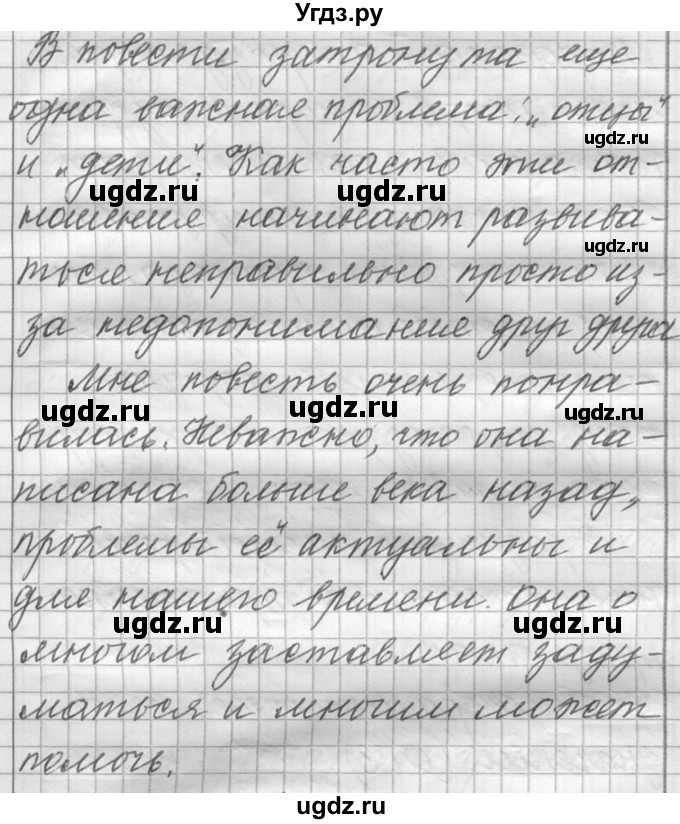 Угдз.ру
В повести затронута еще
одна важная проблема: „отцы"
и „дети". Как часто эти от-
ношения начинают развива-
ться неправильно просто из-
за недопонимания друг друга
Мне повесть очень понра-
вилась. Неважно, что она на-
писана больше века назад,
проблемы её актуальны и
для нашего времени. Она о
многом заставляет заду-
маться и многим может
помочь.
ugdz.ru
ugdz.ru
ugdz.ru
ugdz.ru
ugdz.ru
ugdz.ru
ugdz.ru
ugdz.ru
ugdz.ru
ugdz.ru